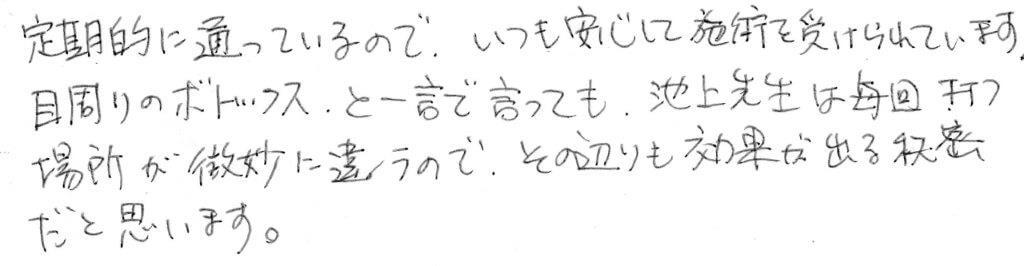 定期的に通っているので、いつも安心して施術を受けられています。
目周りのボトックス、と一言で言っても、池上先生は毎回打つ
場所が微妙に違うので、その辺りも効果が出る秘密
だと思います。